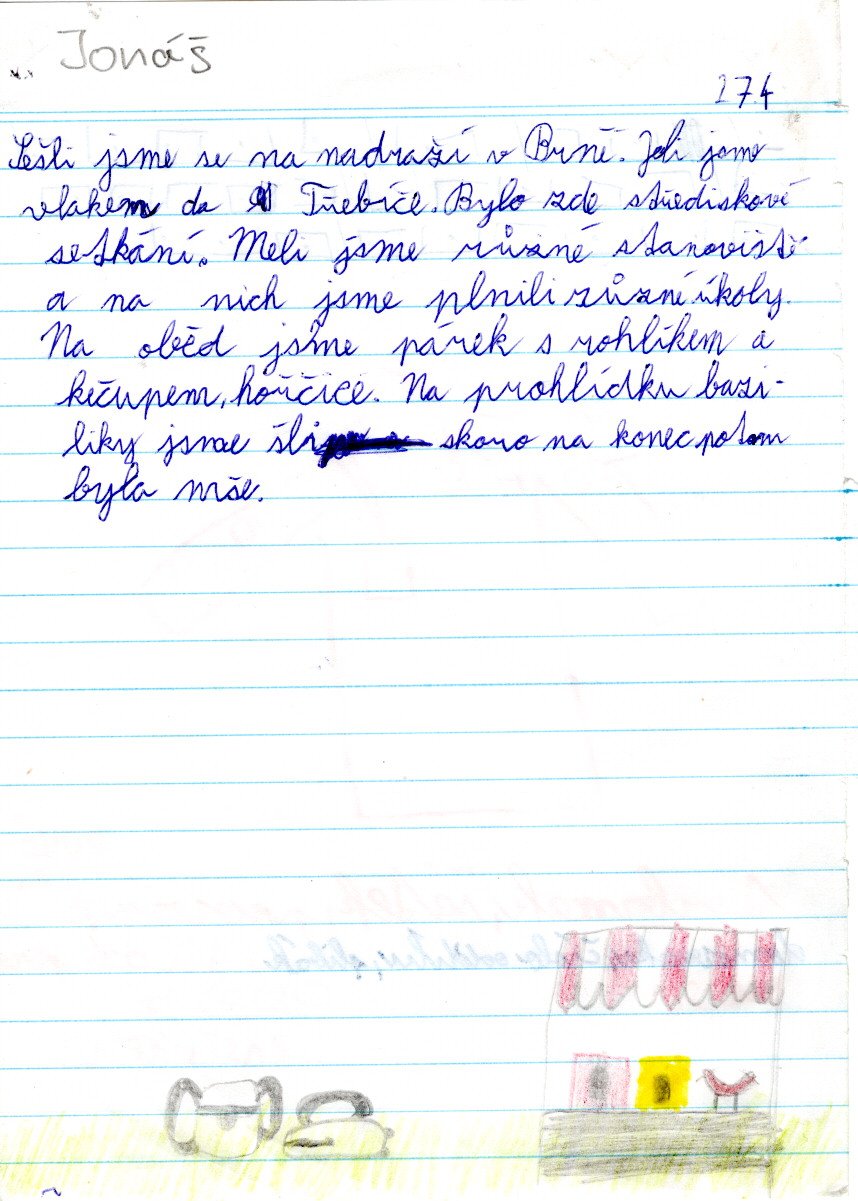 Jonáš
274
Sešli jsme se na nadraží v Brně. Jeli jsme
vlakem do Třebíče. Bylo zde střediskové
setkání. Meli jsme různé stanoviště
a na nich jsme plnili různé úkoly.
Na oběd jsme párek s rohlíkem a
kečupem, hořčice. Na prohlídku bazi-
liky jsme šli skoro na konec potom
byla mše.